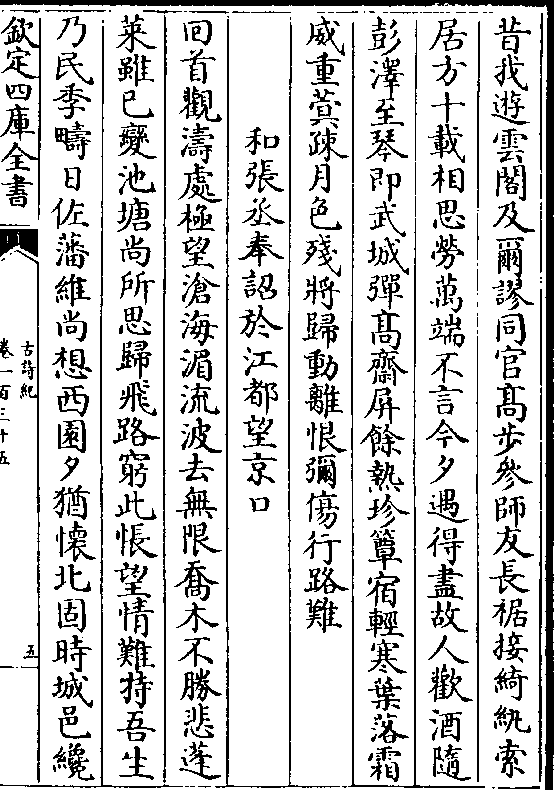 昔我遊雲閣及爾謬同官高步參師友長裾接綺紈索
居方十載相思勞萬端不言今夕遇得盡故人歡酒隨
彭澤至琴即武城彈高齋屏餘熱珍簟宿輕寒葉落霜
威重蓂疎月色殘將歸動離恨彌傷行路難
和張丞奉詔於江都望京口
回首觀濤處極望滄海湄流波去無限喬木不勝悲蓬
萊雖已變池塘尚所思歸飛路窮此悵望情難持吾生
乃民季疇日佐藩維尚想西園夕猶懷北固時城邑纔
欽定四庫全書
古詩紀
卷一百三十五
五